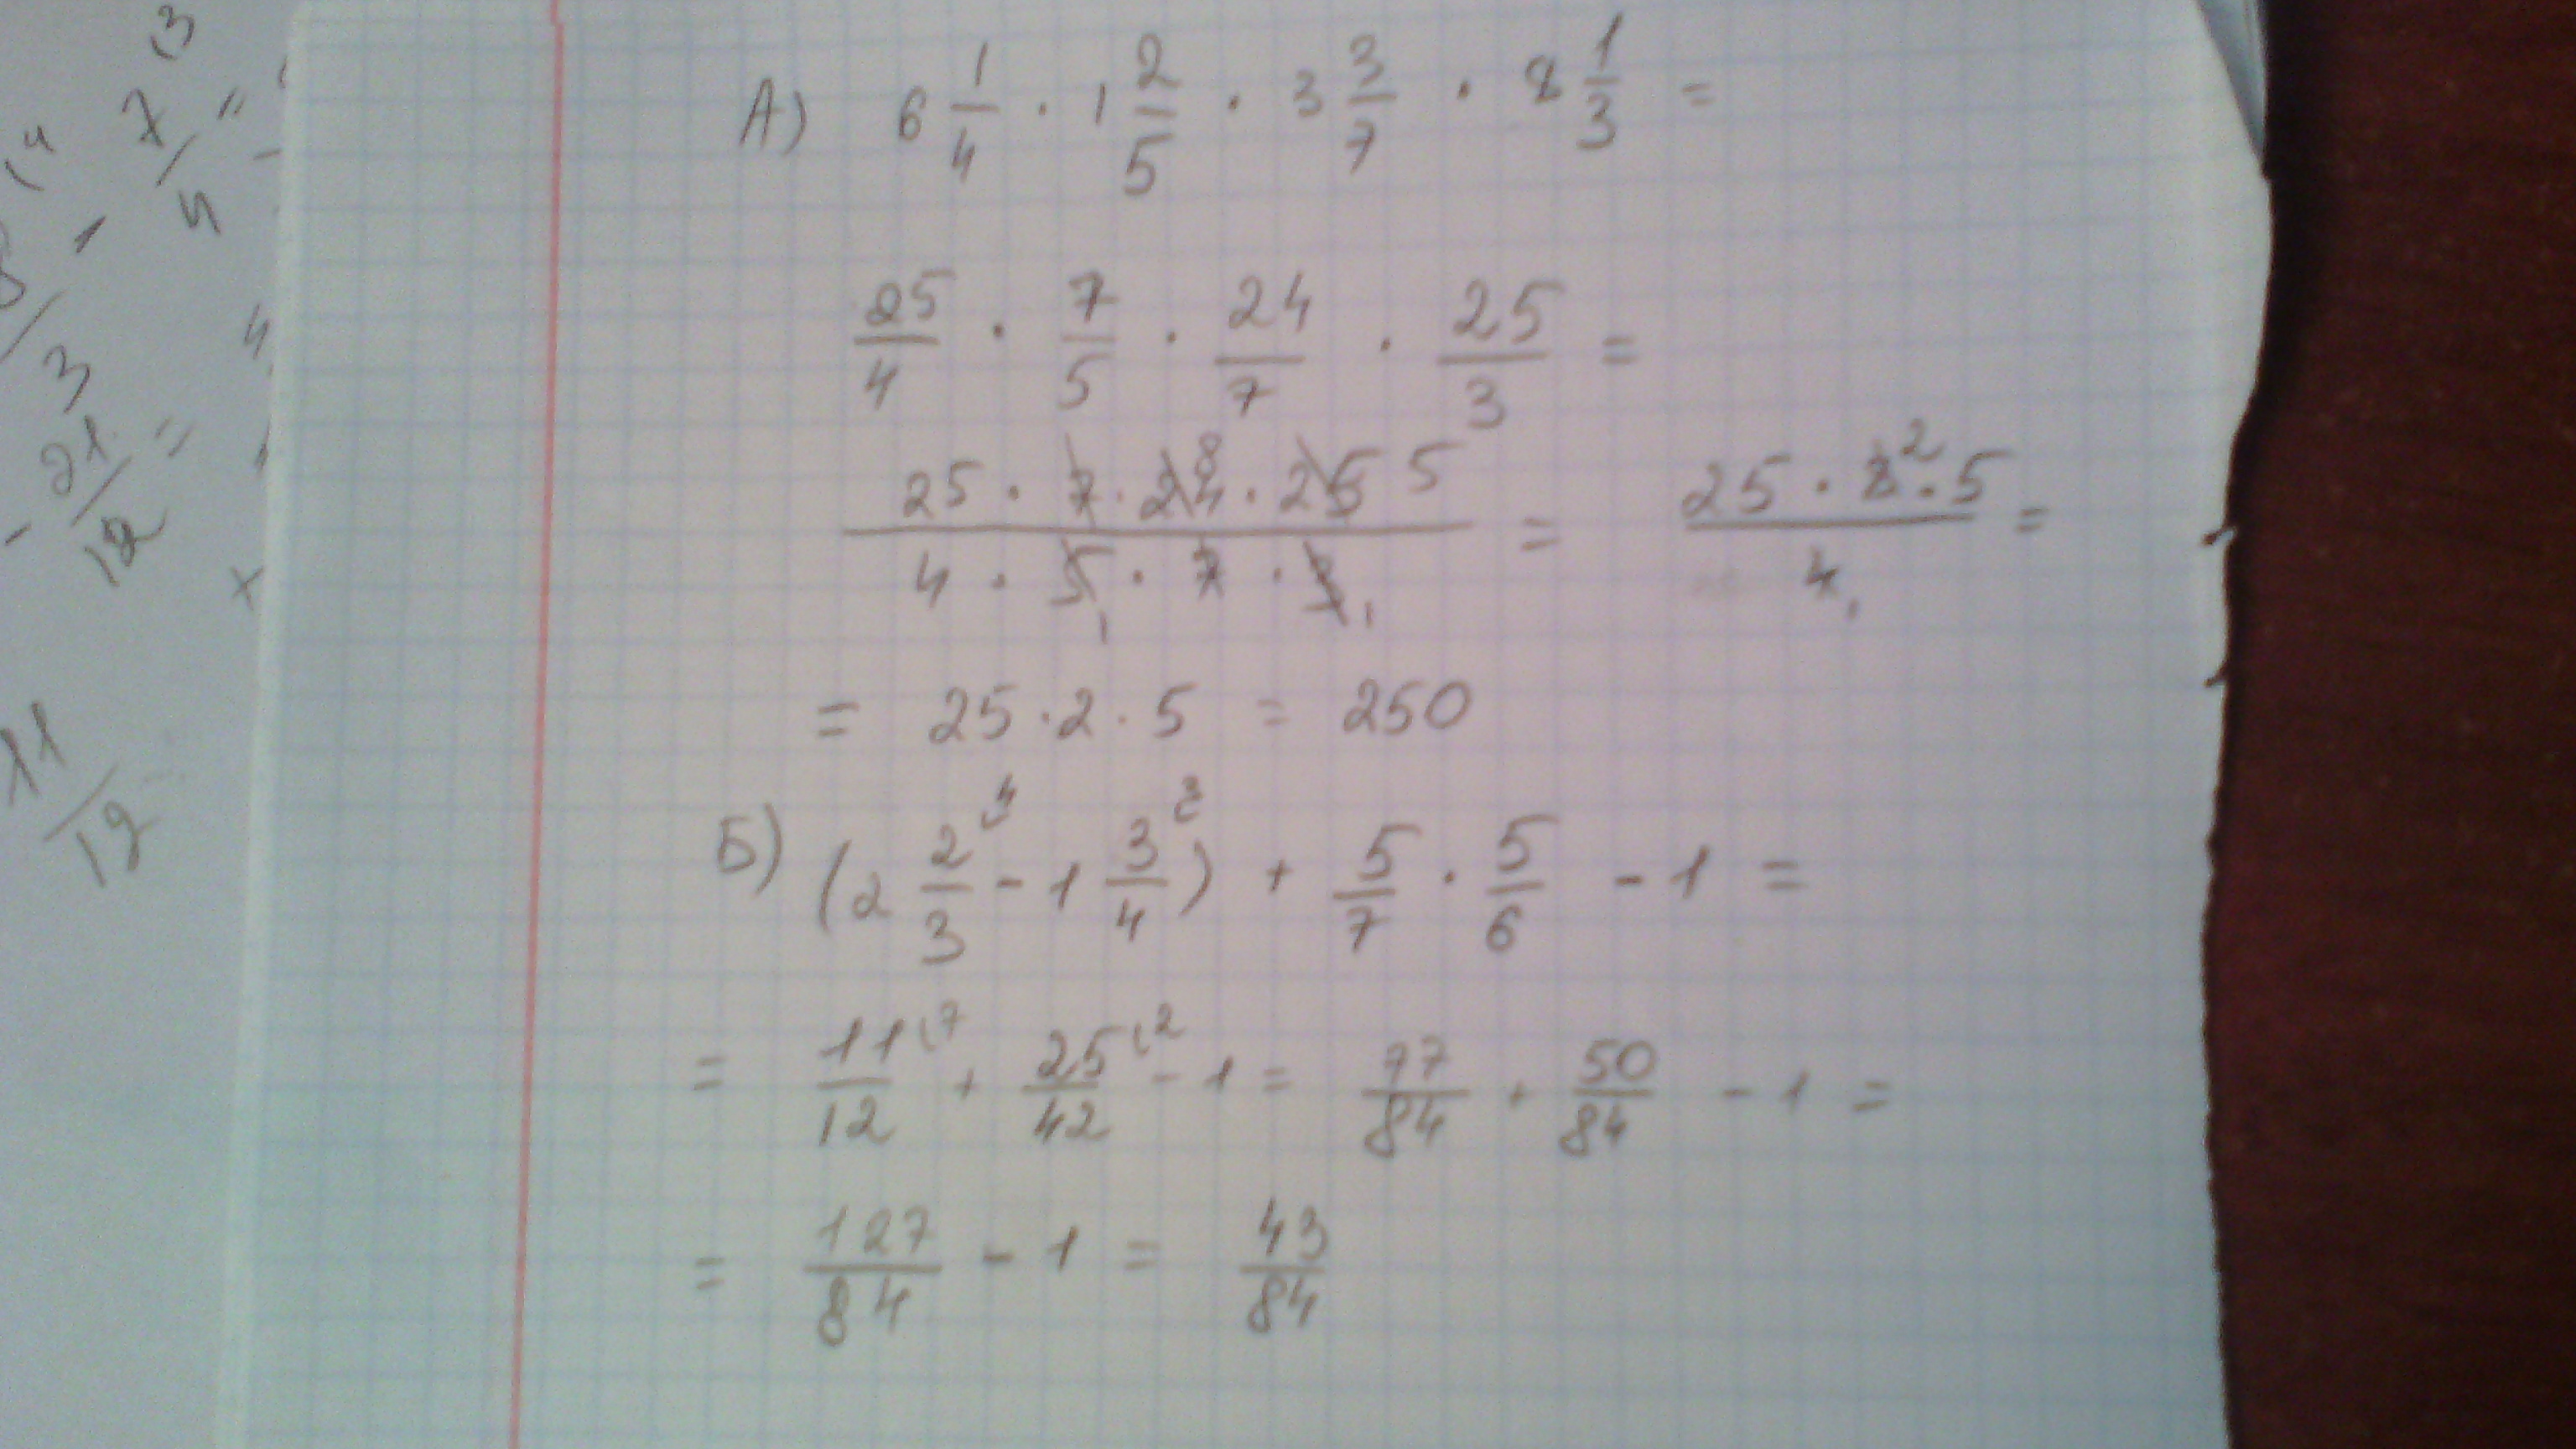 А) 6 1/4 · 1 2/5 · 3 3/7 · 8 1/3 =
25/4 · 7/5 · 24/7 · 25/3 =
25 · 7 · 24 8 · 25 5 / 4 · 5 1 · 7 · 3 1 = 25 · 8 2 · 5 / 4 1 =
= 25 · 2 · 5 = 250
Б) (2 2/3 (4 - 1 3/4 (3) + 5/7 · 5/6 - 1 =
= 11/12 (7 + 25/42 (2 - 1 = 77/84 + 50/84 - 1 =
= 127/84 - 1 = 43/84
(4
3 - 7/4 (3 =
- 21/12 =
11/12